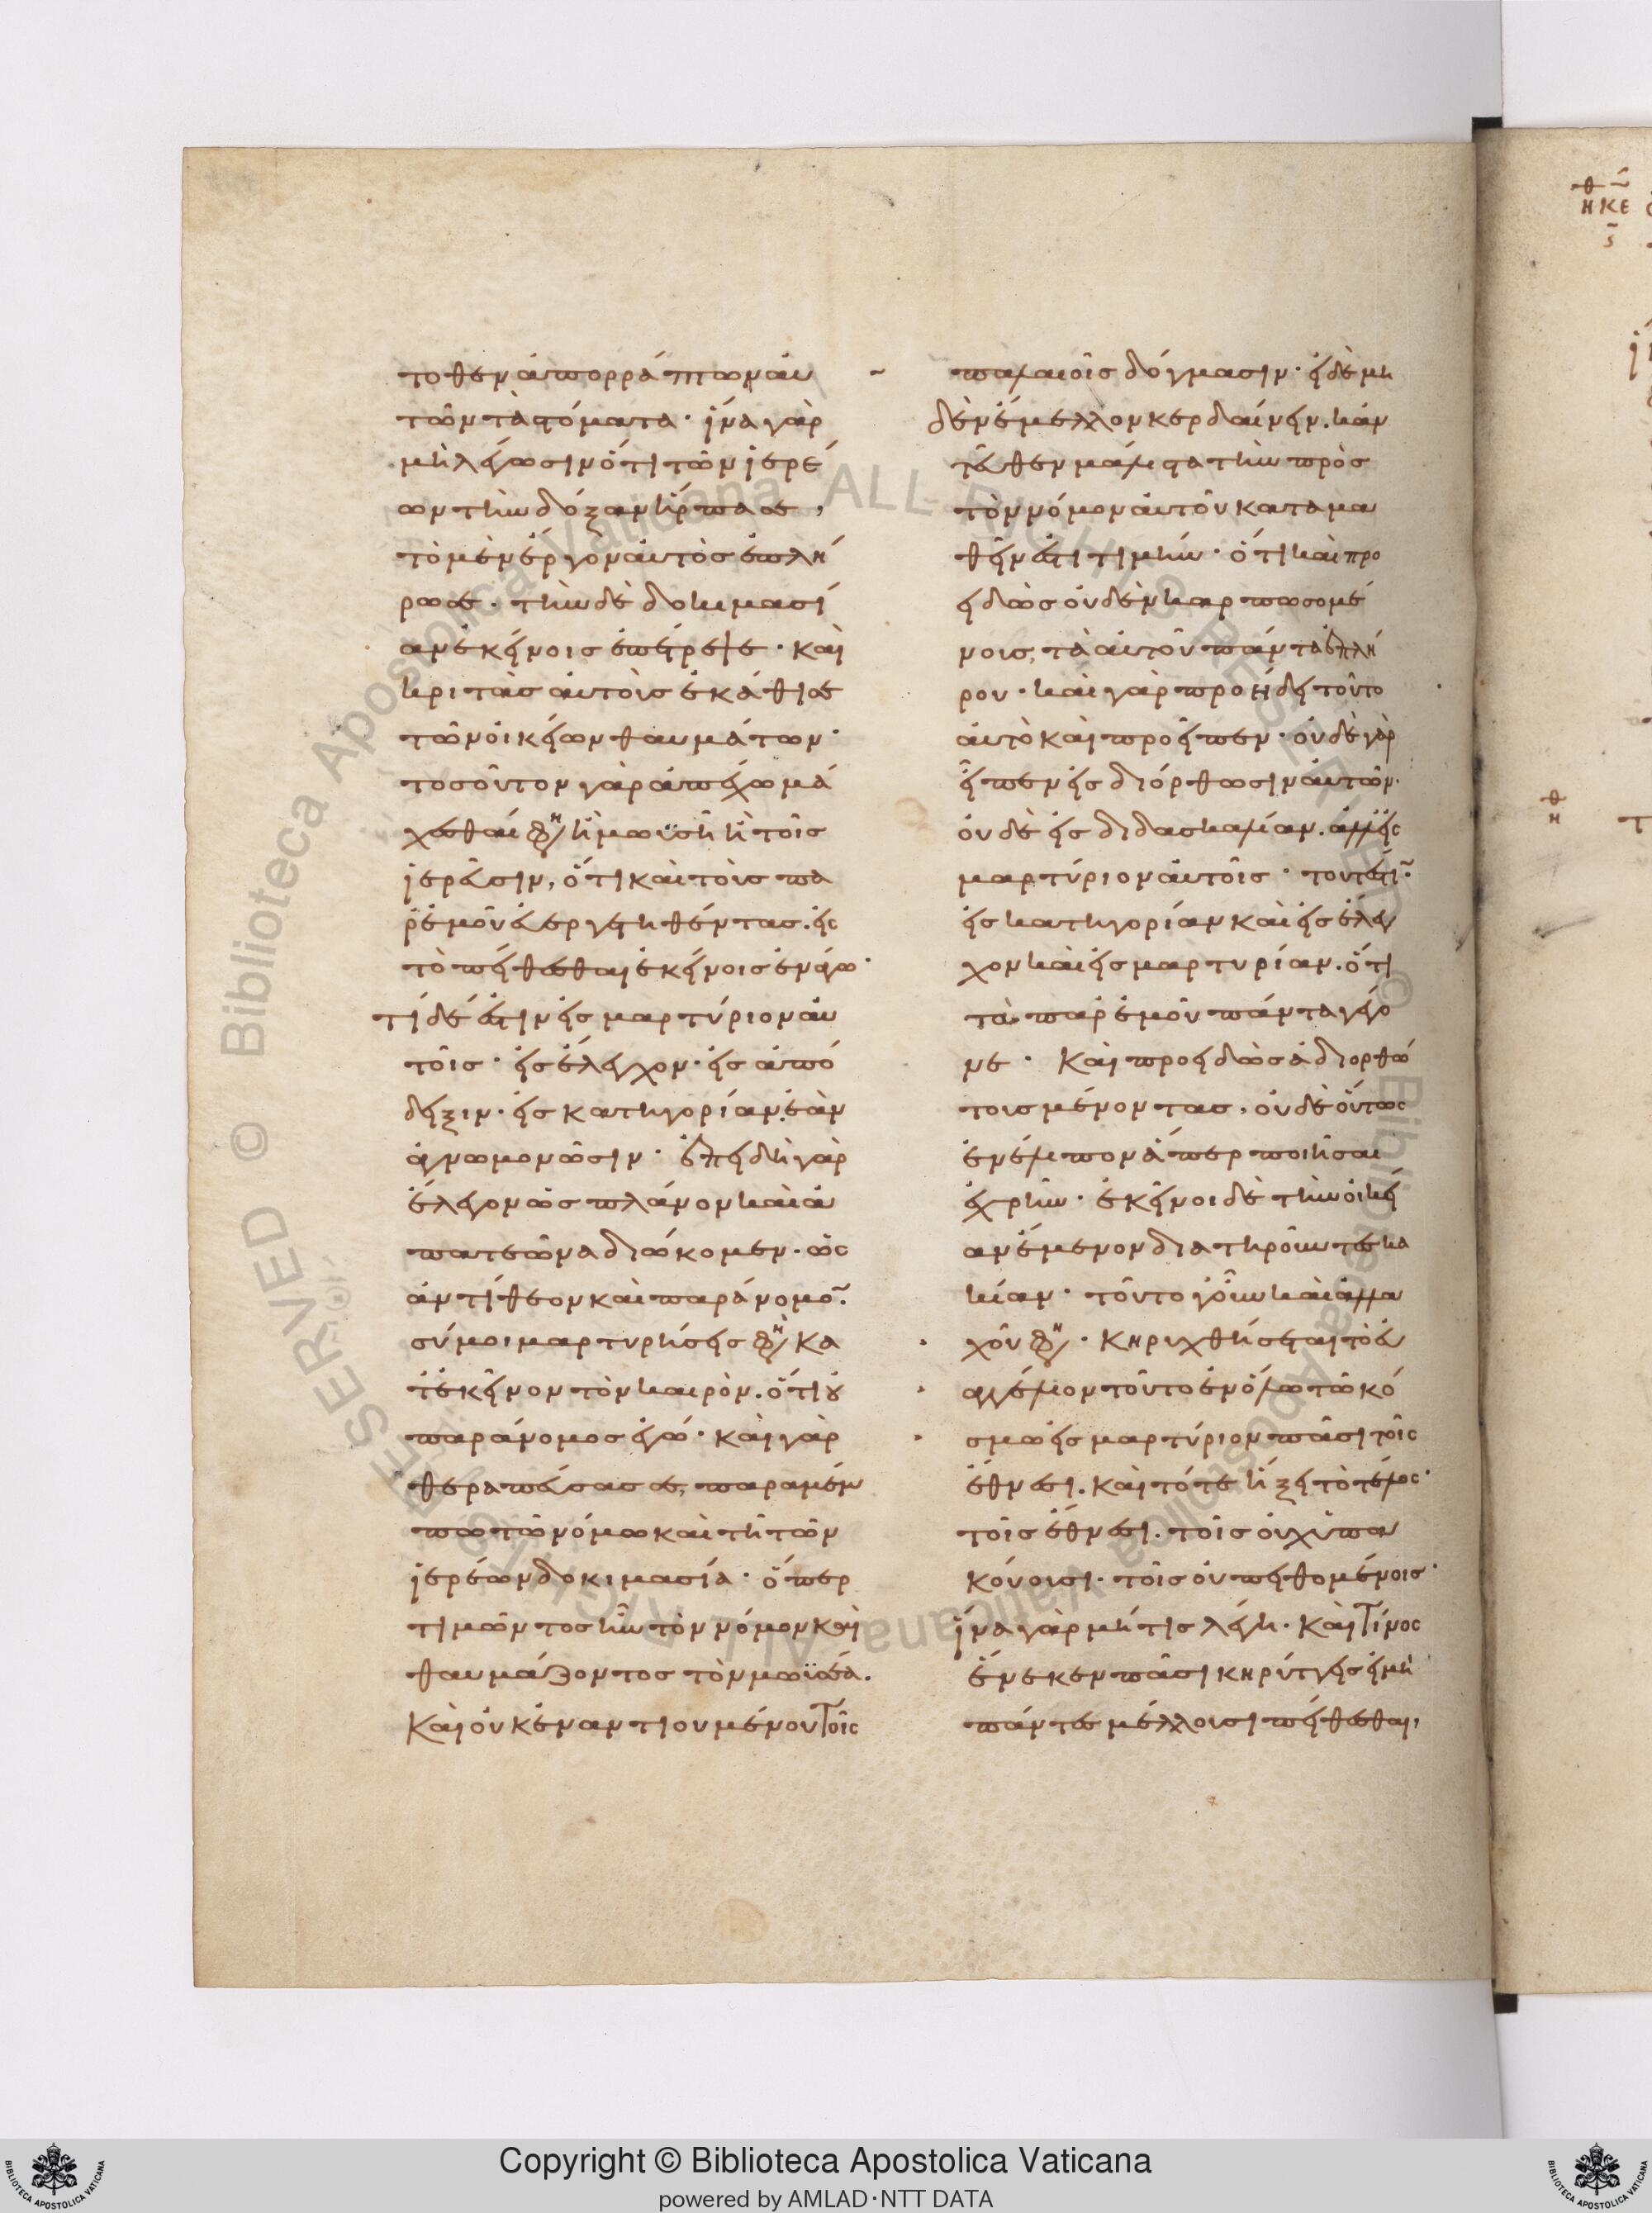 τοθεν ἀπορράπτων αὐ
τῶν τὰ στόματα· ἵνα γὰρ
μὴ λέγωσιν ὅτι τῶν ἱερέ
ων τὴν δόξαν ἥρπασε,
τὸ μὲν ἔργον αὐτὸς ἐπλή
ρωσε· τὴν δὲ δοκιμασί
αν ἐκείνοις ἐπέτρεψε· καὶ
κριτὰς αὐτοὺς ἐκάθισε
τῶν οἰκείων θαυμάτων·
τοσοῦτον γὰρ ἀπέχω μά
χεσθαί φη ἢ μωϋσῆ ἢ τοῖς
ἱερεῦσιν, ὅτι καὶ τοὺς πα
ρ' ἐμοῦ εὐεργετηθέντας· εἰς
τὸ πείθεσθαι ἐκείνοις ἐνάγω·
τί δέ ἐστιν εἰς μαρτύριον αὐ
τοῖς· εἰς ἔλεγχον· εἰς ἀπό
δειξιν· εἰς κατηγορίαν ἐὰν
ἀγνωμονῶσιν· ἐπειδὴ γὰρ
ἔλεγον ὡς πλάνον καὶ ἀ
πατεῶνα διώκομεν· ὡς
ἀντίθεον καὶ παράνομο̄·
σύ μοι μαρτυρήσεις φη κα
τ' ἐκεῖνον τὸν καιρὸν· ὅτι οὐ
παράνομος ἐγώ· καὶ γὰρ
θεραπεύσας σε, παραπέμ
πω τῶ νόμω καὶ τῆ τῶν
ἱερέων δοκιμασία· ὅπερ
τιμῶντος ἦν τὸν νόμον καὶ
θαυμάζοντος τὸν μωϋσέα·
καὶ οὐκ ἐναντιουμένου τοῖς
παλαιοῖς δόγμασιν· εἰ δὲ μη
δὲν ἔμελλον κερδαίνειν· κἀν
τεῦθεν μάλιστα τὴν πρὸς
τὸν νόμον αὐτοῦ καταμα
θεῖν ἔστι τιμήν· ὅτι καὶ προ
ειδὼς οὐδὲν καρπωσομέ
νους, τὰ αὐτοῦ πάντα ἐπλή
ρου· καὶ γὰρ προήδει τοῦτο
αὐτὸ καὶ προεῖπεν· οὐδὲ γὰρ
εἶπεν εἰς διόρθωσιν αὐτῶν·
οὐδὲ εἰς διδασκαλίαν· ἀλλ' εἰς
μαρτύριον αὐτοῖς· τουτέστῑ·
εἰς κατηγορίαν καὶ εἰς ἔλεγ
χον καὶ εἰς μαρτυρίαν· ὅτι
τὰ παρ' ἐμοῦ πάντα γέγο
νε· Καὶ προειδὼς ἀδιορθώ
τους μένοντας, οὐδὲ οὕτως
ἐνέλιπον ἅπερ ποιῆσαι
ἐχρῆν· ἐκεῖνοι δὲ τὴν οἰκεί
αν ἔμενον διατηροῦντες κα
κίαν· τοῦτο γοῦν καὶ ἀλλα
χοῦ φη· Κηρυχθήσεται τὸ εὐ
αγγέλιον τοῦτο ἐν ὅλω τῶ κό
σμω εἰς μαρτύριον πᾶσι τοῖς
ἔθνεσι· καὶ τότε ἥξει τὸ τέλος·
τοῖς ἔθνεσι· τοῖς οὐχ ὑπα
κούουσι· τοῖς οὐ πειθομένοις·
ἵνα γὰρ μή τις λέγη· καὶ τίνος
ἕνεκεν πᾶσι κηρύττεις εἰ μὴ
πάντες μέλλουσι πείθεσθαι,
Copyright © Biblioteca Apostolica Vaticana
powered by AMLAD·NTT DATA